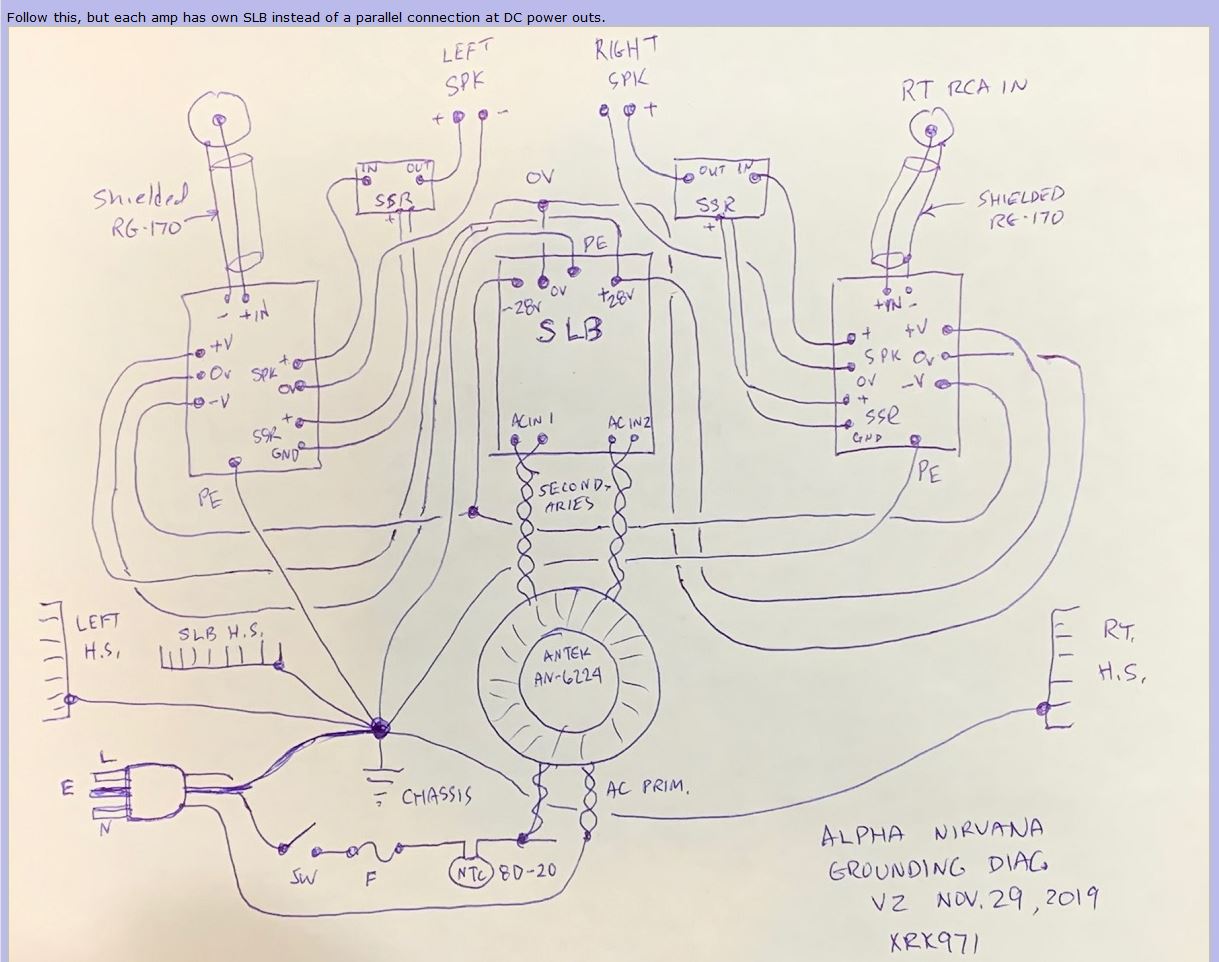 Follow this, but each amp has own SLB instead of a parallel connection at DC power outs.
LEFT
SPK
+ -
RIGHT
SPK
+
RT RCA IN
Shielded
RG-170
IN OUT
SSR
+
0V
OUT IN
SSR
+
SHIELDED
RG-170
- +IN
+V
0v
-V
SPK +
0v
+
SSR
GND
PE
PE
-28v 0V +28v
SLB
AC IN 1 AC IN 2
SECOND-
ARIES
+IN -
+ +V
SPK 0v
0V -V
+
SSR
GND
PE
LEFT
H.S.
SLB H.S.
ANTEK
AN-6224
RT.
H.S.
L
E
N
CHASSIS
AC PRIM.
SW F NTC 8D-20
ALPHA NIRVANA
GROUNDING DIAG.
V2 NOV. 29, 2019
XRK971